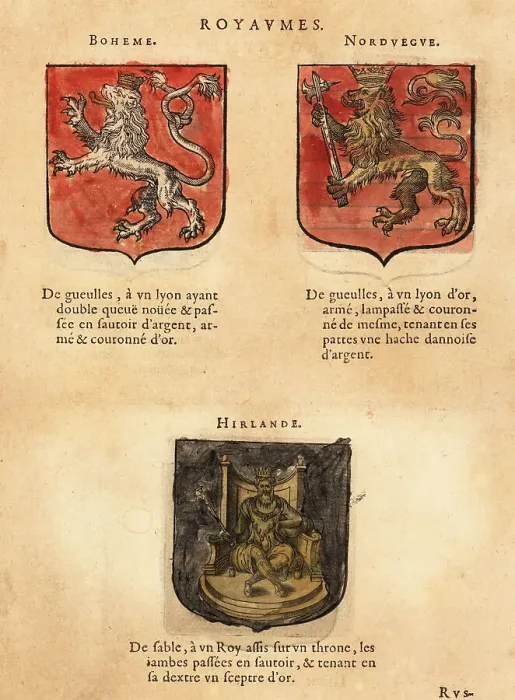 ROYAVMES.
BOHEME.
De gueulles, à vn lyon ayant
double queuë noüée & pas-
sée en sautoir d'argent, ar-
mé & couronné d'or.
NORDVEGVE.
De gueulles, à vn lyon d'or,
armé, lampassé & couron-
né de mesme, tenant en ses
pattes vne hache dannoise
d'argent.
HIRLANDE.
De sable, à vn Roy assis sur vn throne, les
iambes passées en sautoir, & tenant en
sa dextre vn sceptre d'or.
RVS-